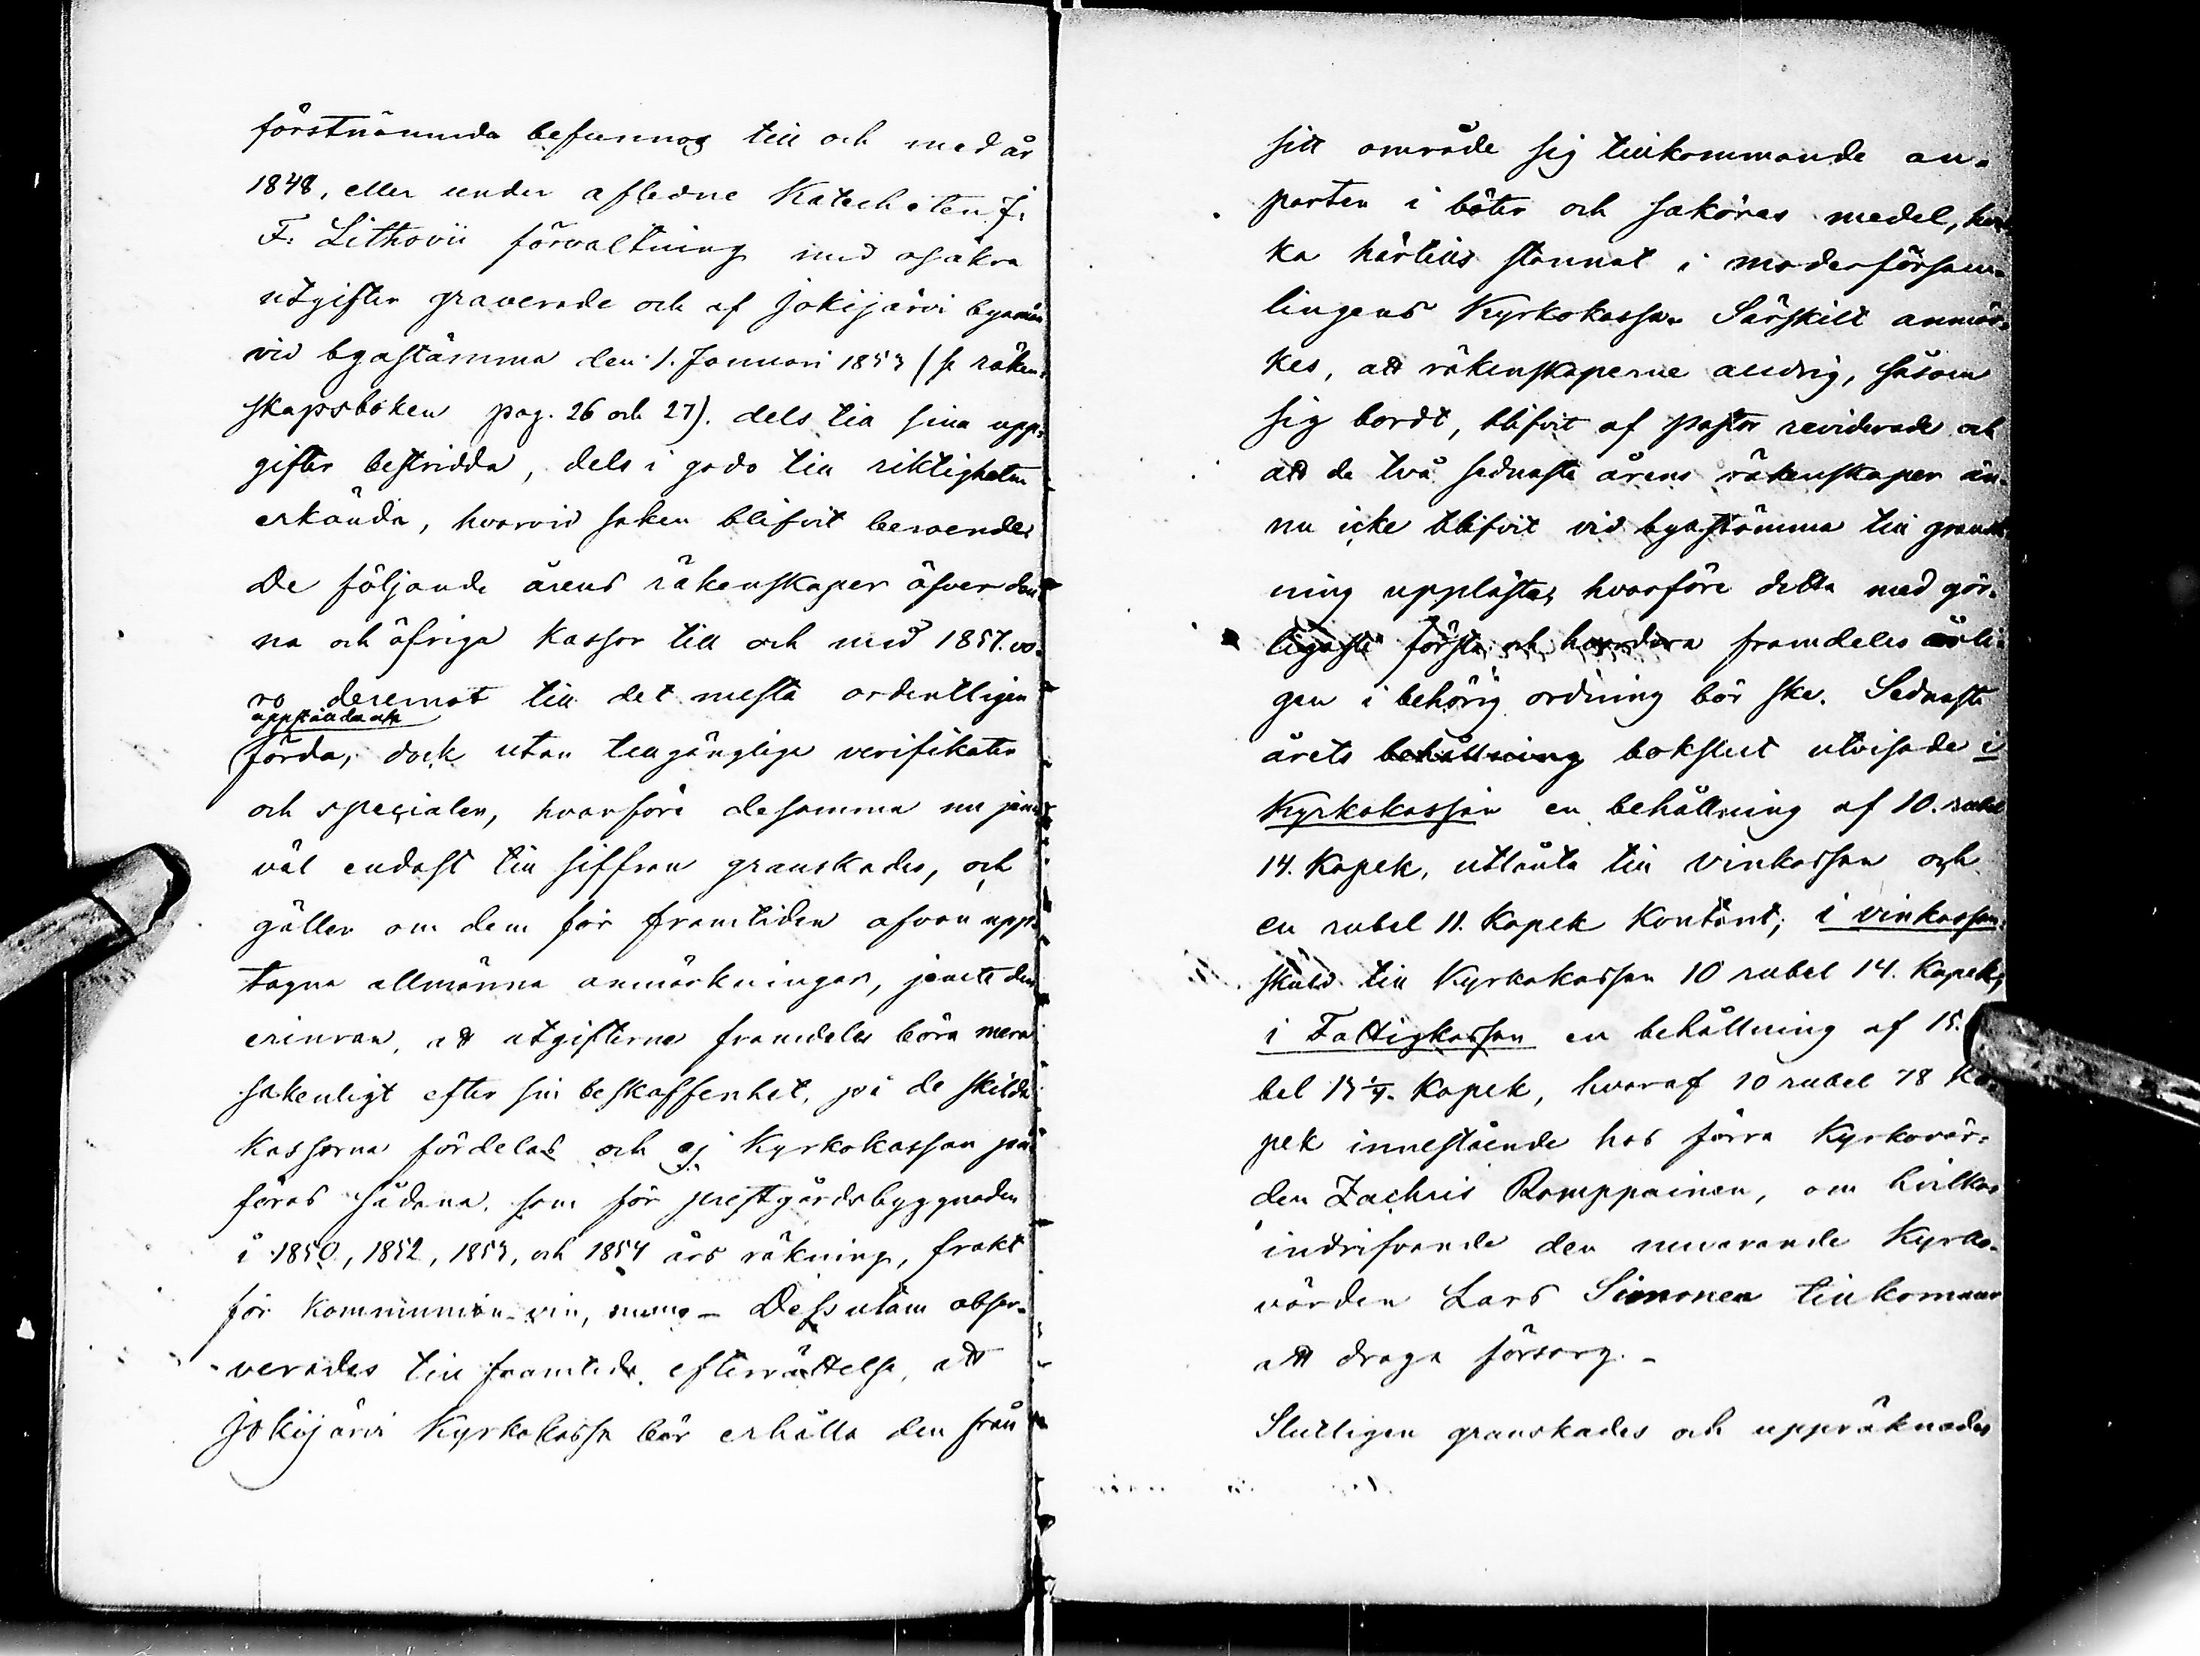 förstnämnda befunnos till och med år
1848, eller under aflidne Katecheten J.
F. Lithovii förvaltning med osäkra
utgifter graverade och af Jokijärvi byamän
vid byastämma den 1. Januari 1853 (se räken-
skapsboken pag. 26 och 27). dels till sina upp-
gifter bestridda, dels i godo till riktigheten
erkända, hvarvid saken blifvit beroende.
De följande årens räkenskaper öfver den-
na och öfriga kassor till och med 1857. vo-
ro deremot till det mesta ordentligen
uppställda och
förda, dock utan tillgänglige verifikater
och specialer, hvarföre desamma nu jem-
väl endast till siffran granskades, och
gäller om dem för framtiden ofvan upp-
tagna allmänna anmärkningar, jemte den
erinran, att utgifterna framdeles böra mera
sakenligt efter sin beskaffenhet, på de skilda
kassorna fördelas och ej Kyrkokassan på-
föras sådana, som för prestgårdsbyggnaden
i 1850, 1852, 1853, och 1854 års räkning, frakt
för kommunion-vin, m.m. - Dessutom obser-
verades till framtida efterrättelse, att
Jokijärvi Kyrkokassa bör erhålla den från
sitt område sig tillkommande an-
parten i böter och saköres medel, hvil-
ka härtills stannat i moderförsam-
lingens Kyrkokassa. Särskilt anmär-
kes, att räkenskaperne aldrig, såsom
sig bordt, blifvit af pastor reviderade och
att de två sednaste årens räkenskaper än-
nu icke blifvit vid byastämma till gransk-
ning upplästa, hvarföre detta med gör-
ligaste första och framdeles årli-
gen i behörig ordning bör ske. Sednaste
årets behållning bokslut utvisade i
Kyrkokassan en behållning af 10. rubel
14. Kopek, utlånta till vinkassan och
en rubel 11. Kopek Kontant; i vinkassan
skuld till Kyrkokassan 10 rubel 14. Kopek,
i Fattigkassan en behållning af 15.
bel Kopek, hvaraf 10 rubel 78 Ko-
pek innestående hos förra Kyrkovär-
den Zachris Romppainen, om hvilkas
indrifvande den nuvarande Kyrko-
värden Lars Simonen tillkommer
att draga försorg. -
Slutligen granskades och uppräknades